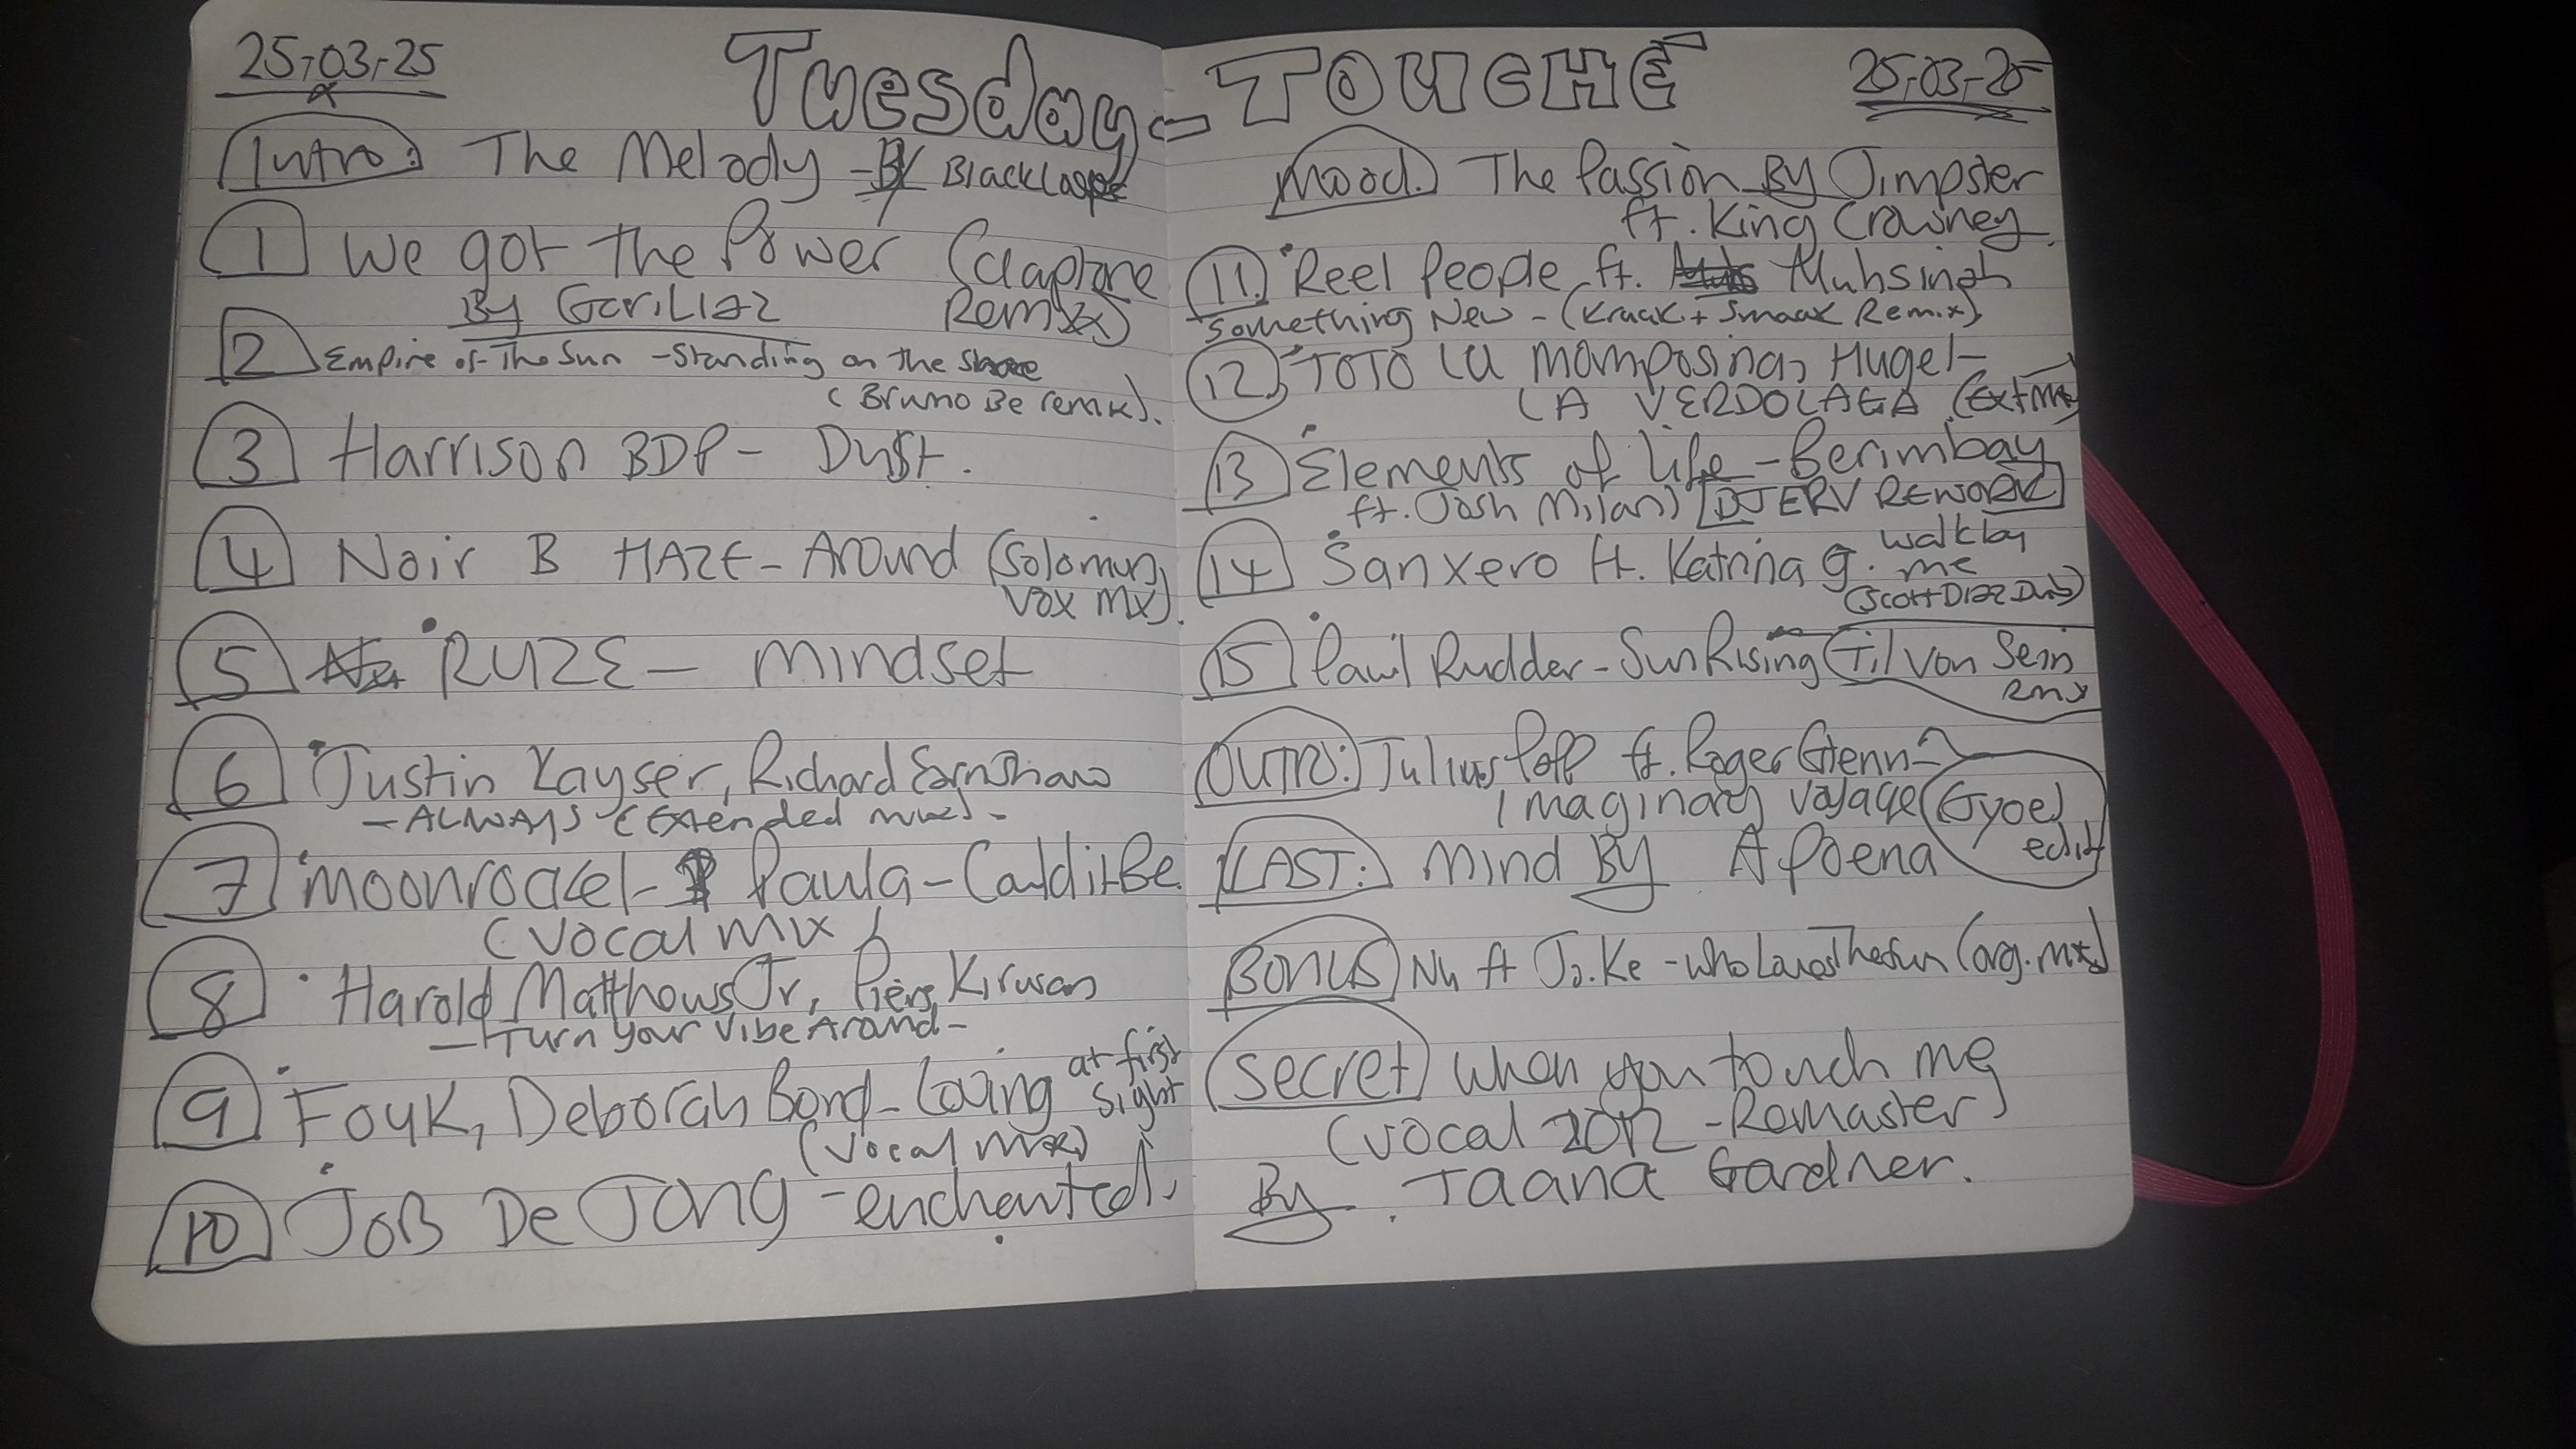 25-03-25
Tuesday - TOUCHÉ
25-03-25
Intro: The Melody - By
1 We got the Power (Claptone
By Gorillaz Remix)
2 Empire of The Sun - Standing on the Shore
(Bruno Be remix).
3 Harrison BDP - Dust.
4 Noir B HAZE - Around (Solomun
Vox Mx).
5 RUZE - Mindset
6 Justin Kayser, Richard Earnshaw
- ALWAYS (Extended mix) -
7 Moonrocket - Paula - Could it Be
(Vocal Mix)
8 Harold Matthews Jr, Piers Kirwan
- Turn Your Vibe Around -
9 Fouk, Deborah Bond - Loving at first sight
(Vocal mix)
10 JOB De JONG - enchanted.
Mood. The Passion By Jimpster
ft. King Crowney.
11. Reel People ft. Muhsinah
Something New - (Kraak + Smaak Remix)
12. TOTO La Momposina, Hugel -
LA VERDOLAGA (Ext Mx)
13 Elements of life - Berimbay
ft. Josh Milan) [DJ ERV REWORK]
14 Sanxero ft. Katrina g. walk by
me
(Scott Diaz Dub)
15 Paul Rudder - Sun Rising (Til Von Sein
Rmx
OUTRO: Julius Papp ft. Roger Glenn -
Imaginary Voyage (Gyoe)
edit
LAST: Mind By Apoena
BONUS Nu ft Jo.Ke - who Loves The Sun (org. mx)
Secret when you touch me
(vocal 2012 - Remaster)
By. Taana Gardner.